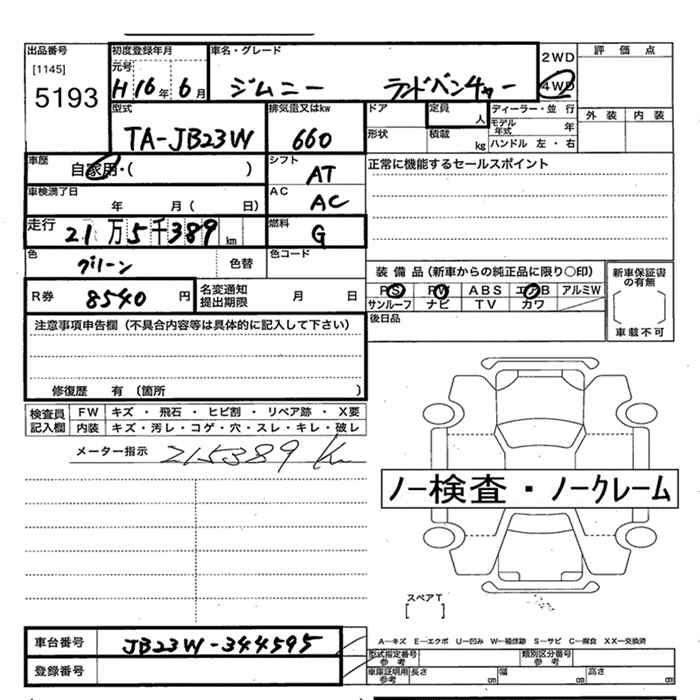 出品番号 初度登録年月 車名・グレード 評価点
[1145] 元号 2WD
5193 H16年6月 ジムニー ランドベンチャー 4WD
型式 排気量又はkw ドア 定員 人 ディーラー・並行 外装 内装
TA-JB23W 660 形状 積載 kg モデル年式 年
ハンドル 左・右
車歴 シフト 正常に機能するセールスポイント
自家用・( ) AT
車検満了日 AC
年 月( 日) AC
走行 燃料
21万5千389km G
色 色コード
グリーン 色替
装備品(新車からの純正品に限り○印) 新車保証書の有無
R券 8540円 名変通知提出期限 月 日 PS PW ABS エアB アルミW
サンルーフ ナビ TV カワ
注意事項申告欄(不具合内容等は具体的に記入して下さい) 後日品 車載不可
修復歴 有 (箇所 )
検査員記入欄 FW キズ・飛石・ヒビ割・リペア跡・X要
内装 キズ・汚レ・コゲ・穴・スレ・キレ・破レ
メーター指示 215389 Km
ノー検査・ノークレーム
スペアT
[ ]
車台番号 JB23W-344595 A-キズ E-エクボ U-凹み W-補修跡 S-サビ C-腐食 XX-交換済
型式指定番号 参考 類別区分番号 参考
登録番号 車庫証明用 参考 長さ cm 幅 cm 高さ cm